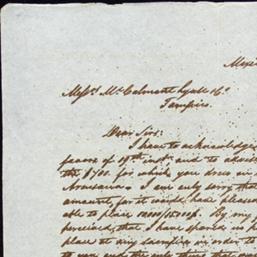 Mexi
Messrs McCalmont Lyall & Co
Tampico.
Dear Sirs:
I have to acknowledge
favors of 19th inst. and to advise
the $700. for which you drew on
I am only sorry that
amount, for it would have pleased
able to place
perceived, that I have spared no p
place at any sacrifice in order to